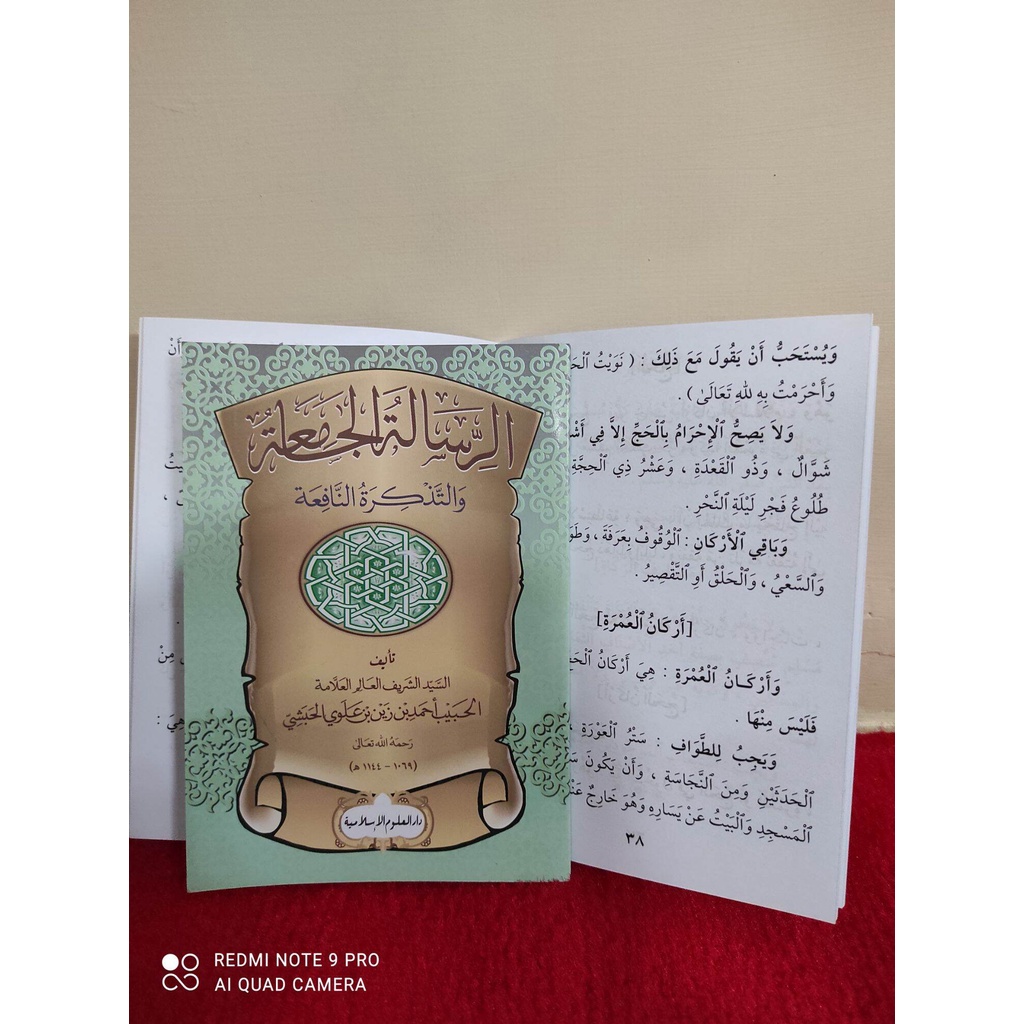 الرِّسَالَةُ الجَامِعَةُ
وَالتَّذْكِرَةُ النَّافِعَة
تأليف
السَّيّد الشريف العالِم العَلّامة
الحَبيْب أحمَد بْن زَيْن بْن عَلَوي الحَبَشِيّ
رَحمَهُ الله تعَالىٰ
(١٠٦٩ - ١١٤٤ ھ)
دار العلوم الإسلامية
وَيُسْتَحَبُّ أَنْ يَقُولَ مَعَ ذَلِكَ : ( نَوَيْتُ
وَأَحْرَمْتُ بِهِ للهِ تَعَالَىٰ ) .
وَلاَ يَصِحُّ ٱلْإِحْرَامُ بِٱلْحَجِّ إِلاَّ فِي
شَوَّالٌ ، وَذُو ٱلْقَعْدَةِ ، وَعَشْرُ ذِي ٱلْحِجَّةِ
طُلُوعُ فَجْرِ لَيْلَةِ ٱلنَّحْرِ .
وَبَاقِي ٱلْأَرْكَانِ : ٱلْوُقُوفُ بِعَرَفَةَ ،
وَٱلسَّعْيُ ، وَٱلْحَلْقُ أَوِ ٱلتَّقْصِيرُ .
[أَرْكَانُ ٱلْعُمْرَةِ]
وَأَرْكَـانُ ٱلْعُمْرَةِ : هِيَ أَرْكَانُ
فَلَيْسَ مِنْهَا .
وَيَجِبُ لِلطَّوَافِ : سَتْرُ ٱلْعَوْرَةِ
ٱلْحَدَثَيْنِ وَمِنَ ٱلنَّجَاسَةِ ، وَأَنْ يَكُونَ
ٱلْمَسْجِدِ وَٱلْبَيْتُ عَنْ يَسَارِهِ وَهُوَ خَارِجٌ
٣٨
أَنْ
مِنْ
هِيَ :
REDMI NOTE 9 PRO
AI QUAD CAMERA